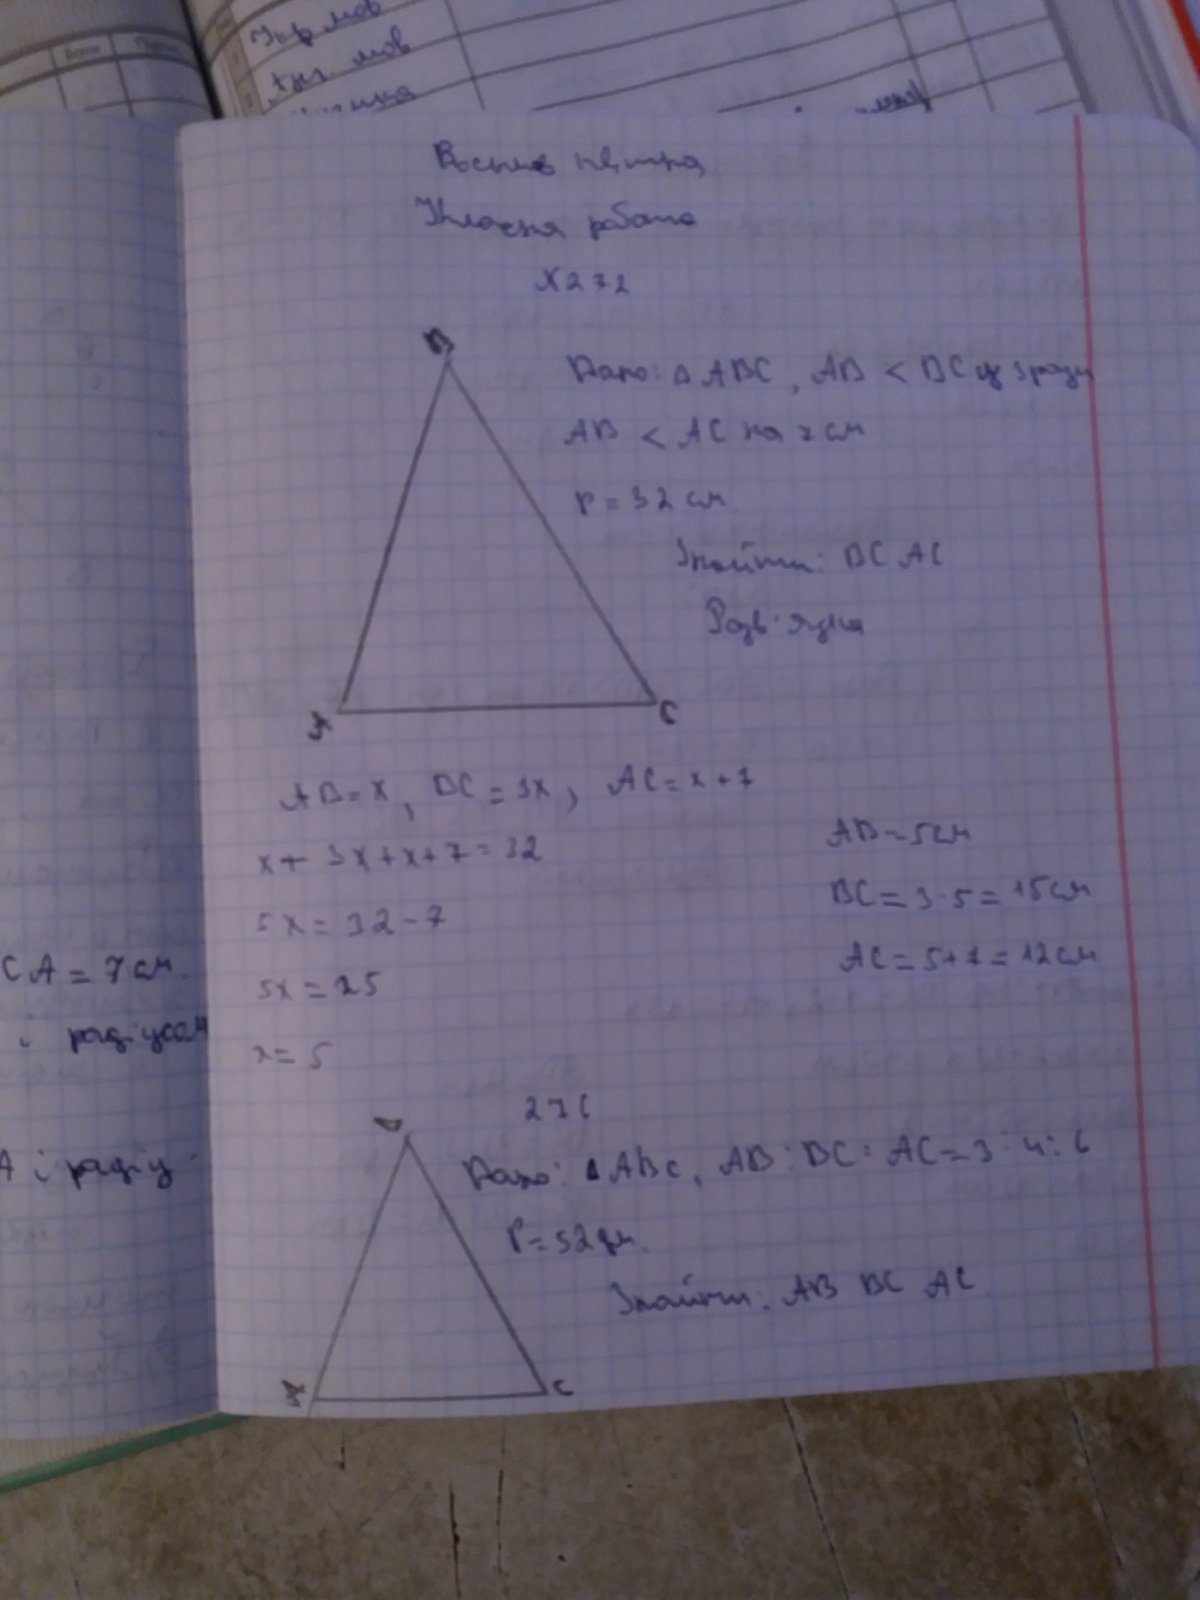 Укр мов
мов
CA = 7 см.
і радіусом
А і радіу
Восьме квітня
Класна робота
№272
B
Дано: Δ ABC, AB < BC у 3 рази
AB < AC на 7 см
P = 32 см
Знайти: BC AC
Розв'язка
A
C
AB = x, BC = 3x, AC = x + 7
x + 3x + x + 7 = 32
5x = 32 - 7
5x = 25
x = 5
AB = 5 см
BC = 3 · 5 = 15 см
AC = 5 + 7 = 12 см
276
Дано: Δ ABC, AB : BC : AC = 3 : 4 : 6
P = 52 дм.
Знайти: AB BC AC
A
C